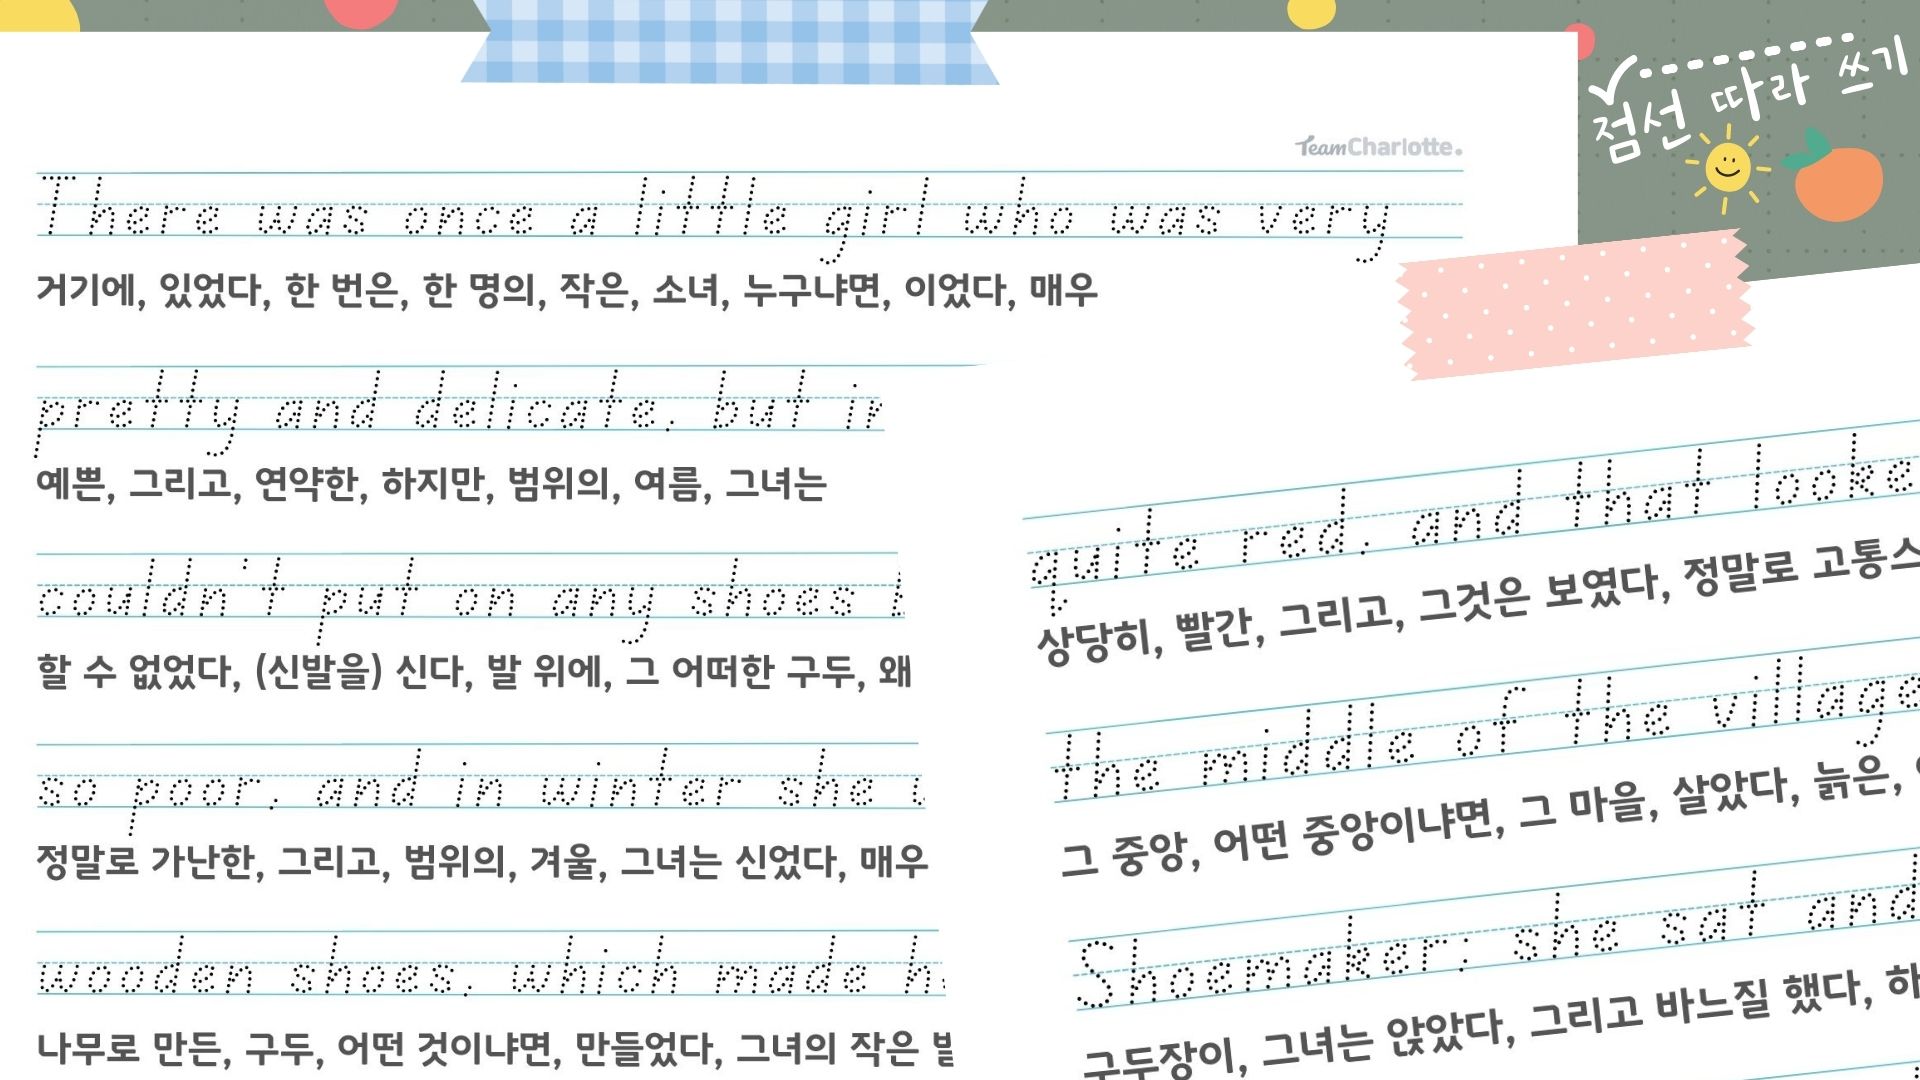 점선 따라 쓰기
TeamCharlotte.
There was once a little girl who was very
거기에, 있었다, 한 번은, 한 명의, 작은, 소녀, 누구냐면, 이었다, 매우
pretty and delicate, but in
예쁜, 그리고, 연약한, 하지만, 범위의, 여름, 그녀는
couldn't put on any shoes
할 수 없었다, (신발을) 신다, 발 위에, 그 어떠한 구두, 왜
so poor, and in winter she
정말로 가난한, 그리고, 범위의, 겨울, 그녀는 신었다, 매우
wooden shoes, which made h
나무로 만든, 구두, 어떤 것이냐면, 만들었다, 그녀의 작은 발
quite red, and that looke
상당히, 빨간, 그리고, 그것은 보였다, 정말로 고통스
the middle of the village
그 중앙, 어떤 중앙이냐면, 그 마을, 살았다, 늙은,
Shoemaker; she sat and
구두장이, 그녀는 앉았다, 그리고 바느질 했다, 하